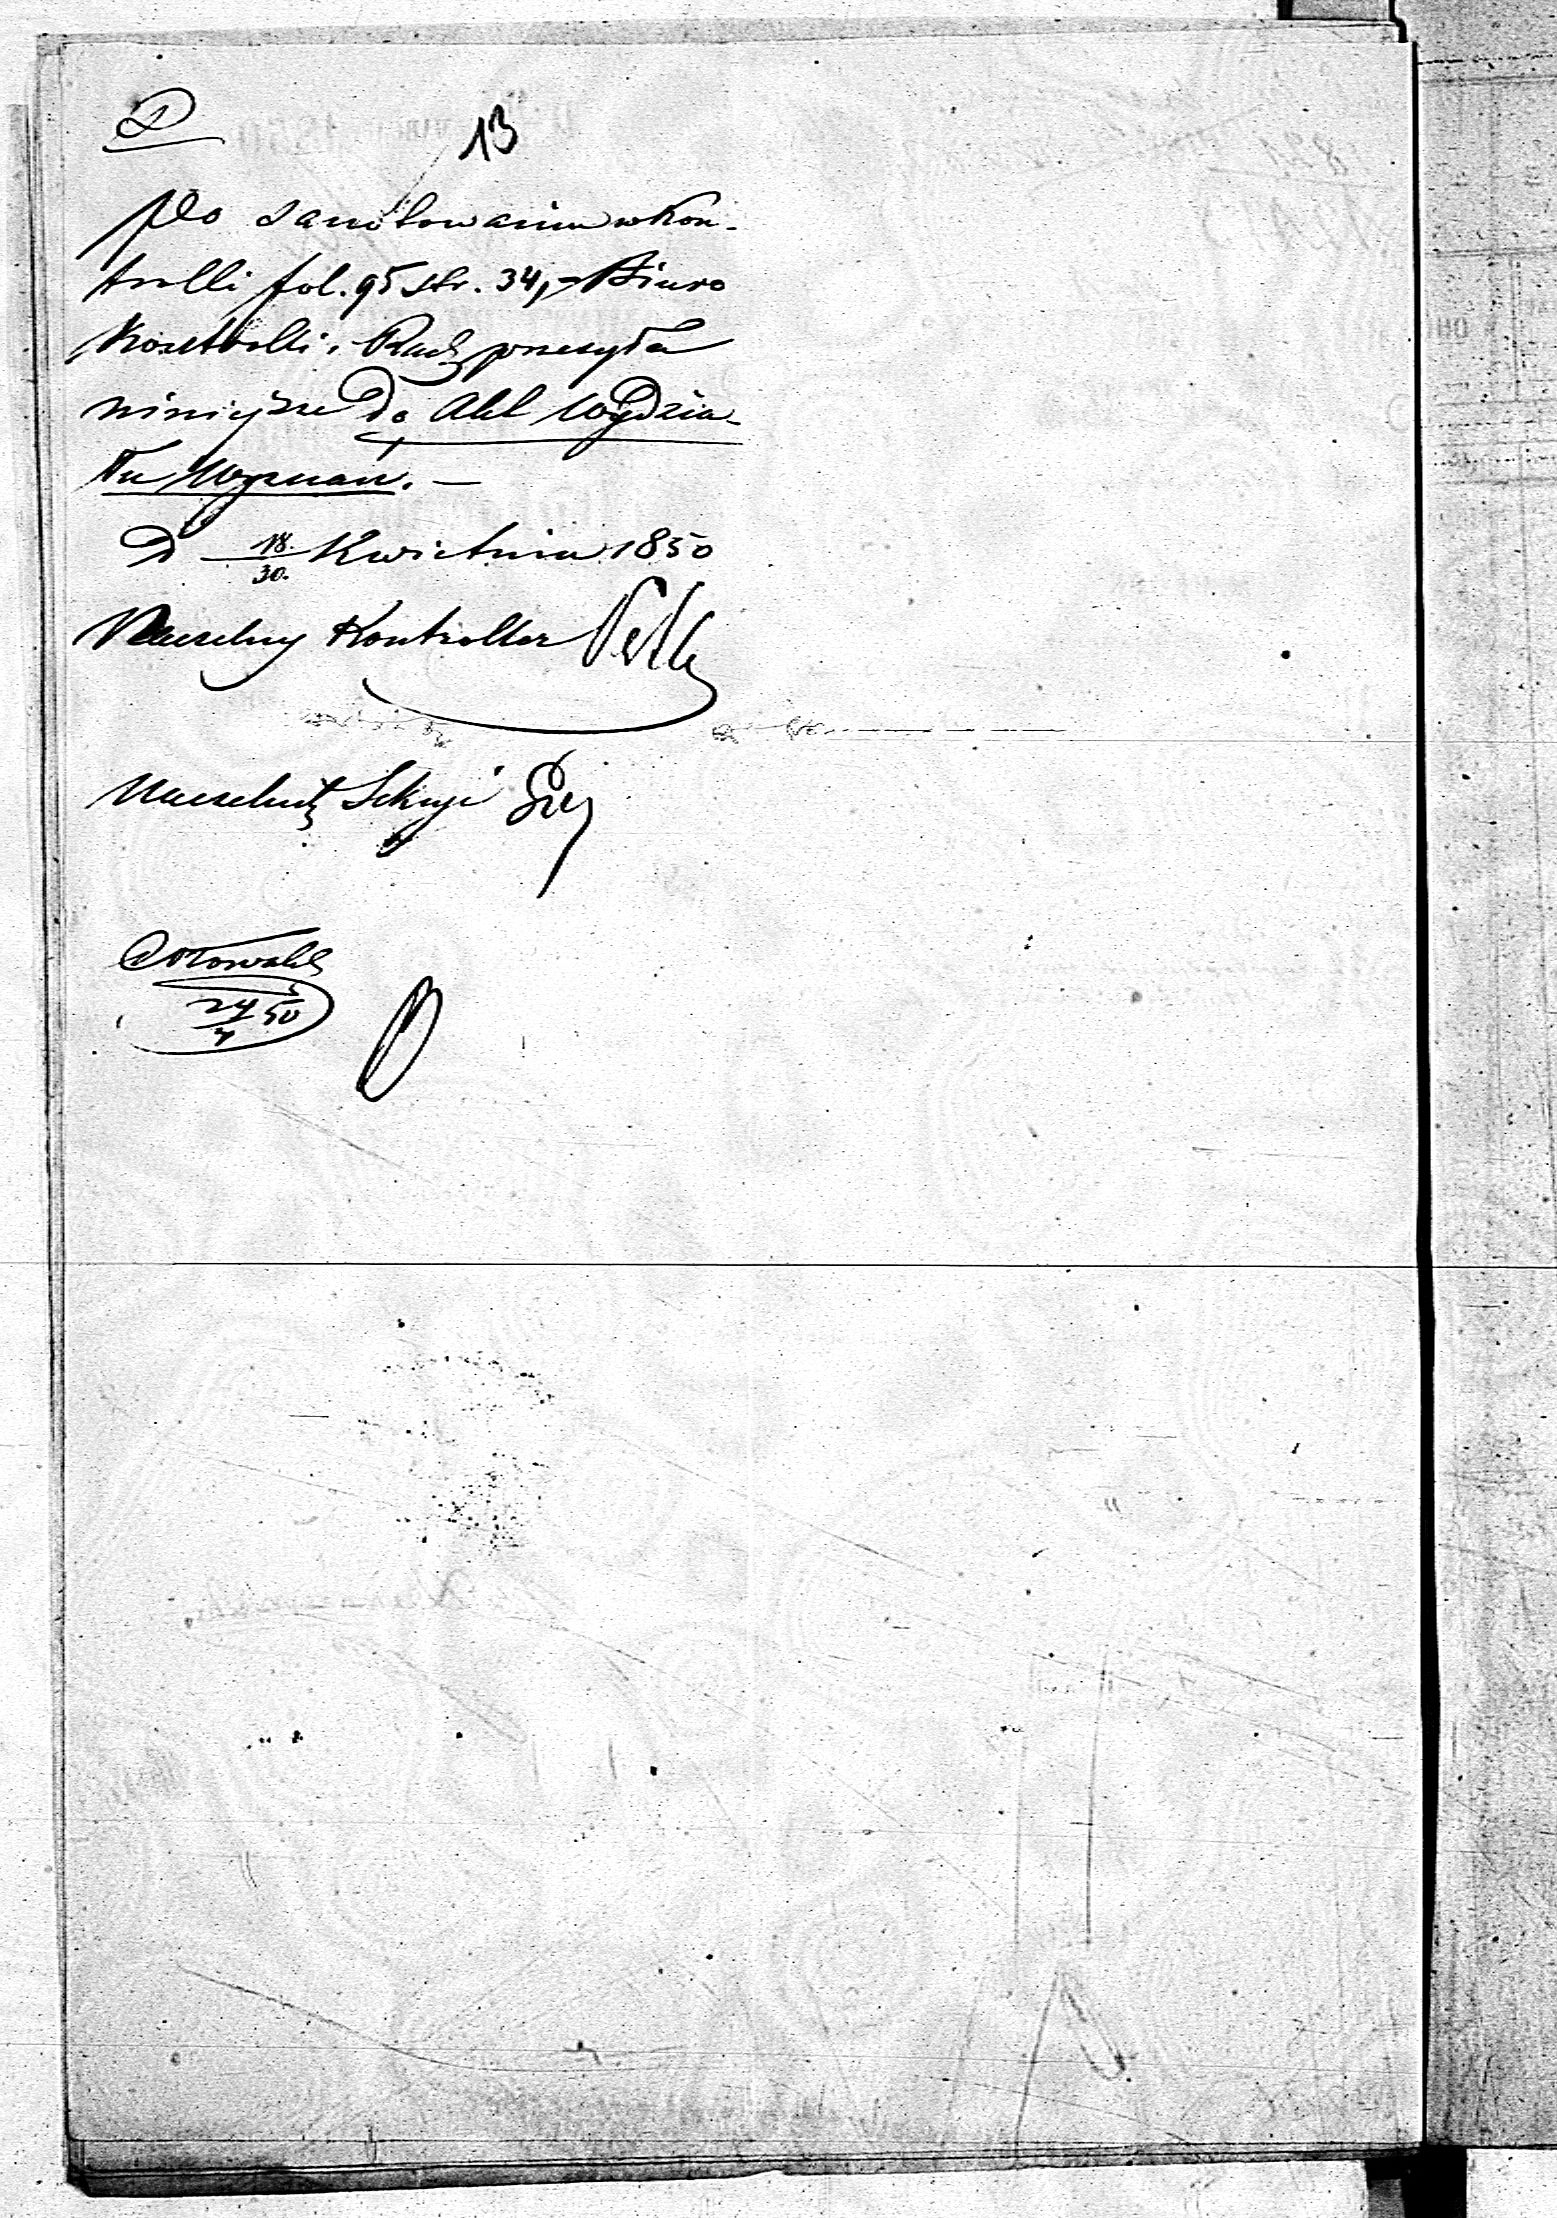 13
Po zanotowaniu w Kon-
trolli fol. 95 str. 34, Biuro
Kontrolli i Rach przesyła
niniejsze do Akt Wydzia-
łu Wyznań. —
D 18/30 Kwietnia 1850
Naczelny Kontroller
Naczelnik Sekcyi
24/4 50